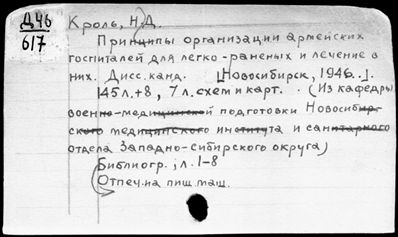 Д46
617
Кроль, Н.Д.
Принципы организации армейских
госпиталей для легко-раненых и лечение в
них. Дисс. канд. [Новосибирск, 1946.].
145 л.+8, 7 л. схем и карт. (Из кафедры
военно-медицинской подготовки Новосибир-
ского медицинского института и санитарного
отдела Западно-Сибирского округа)
Библиогр.; л. 1-8
Отпеч. на пиш. маш.